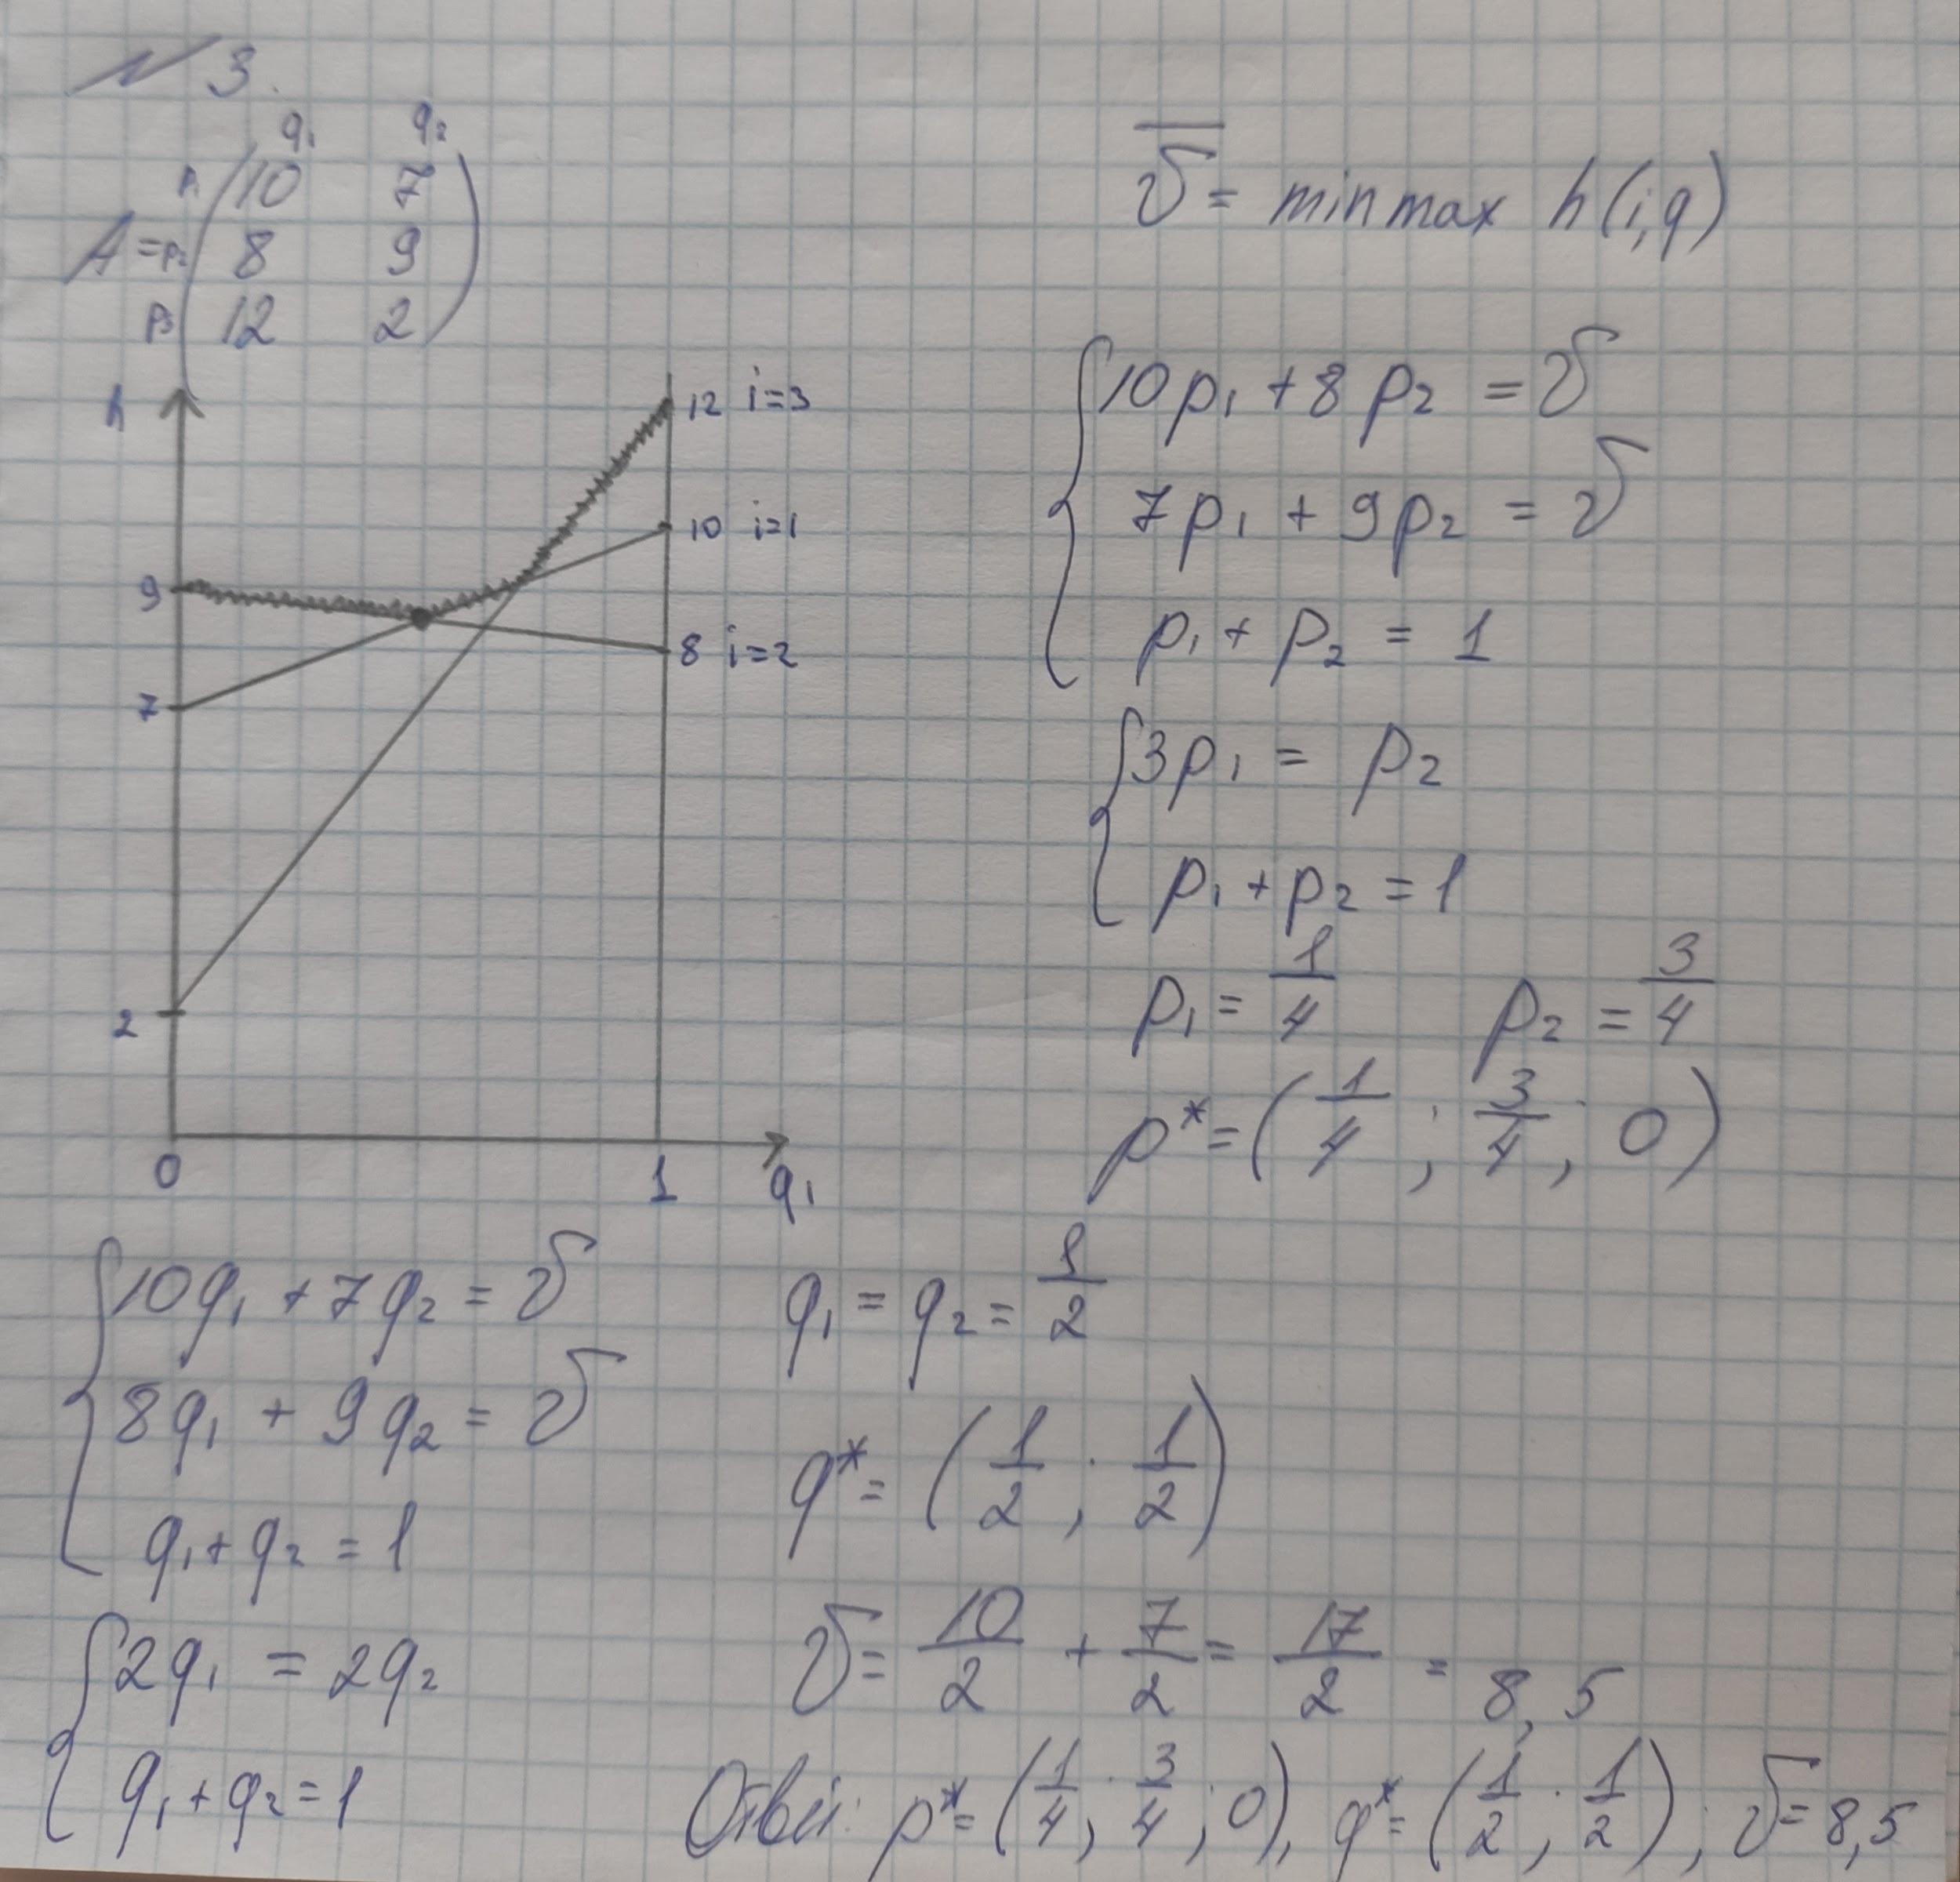 № 3.
q₁ q₂
p₁ 10 7
A = p₂ 8 9
p₃ 12 2
h
12 i=3
10 i=1
9
8 i=2
7
2
0 1 q₁
v̅ = min max h(i,q)
10p₁ + 8p₂ = v
7p₁ + 9p₂ = v
p₁ + p₂ = 1
3p₁ = p₂
p₁ + p₂ = 1
p₁ = 1/4 p₂ = 3/4
p* = (1/4 ; 3/4 ; 0)
10q₁ + 7q₂ = v
8q₁ + 9q₂ = v
q₁ + q₂ = 1
2q₁ = 2q₂
q₁ + q₂ = 1
q₁ = q₂ = 1/2
q* = (1/2 ; 1/2)
v = 10/2 + 7/2 = 17/2 = 8,5
Ответ: p* = (1/4 ; 3/4 ; 0), q* = (1/2 ; 1/2) ; v = 8,5